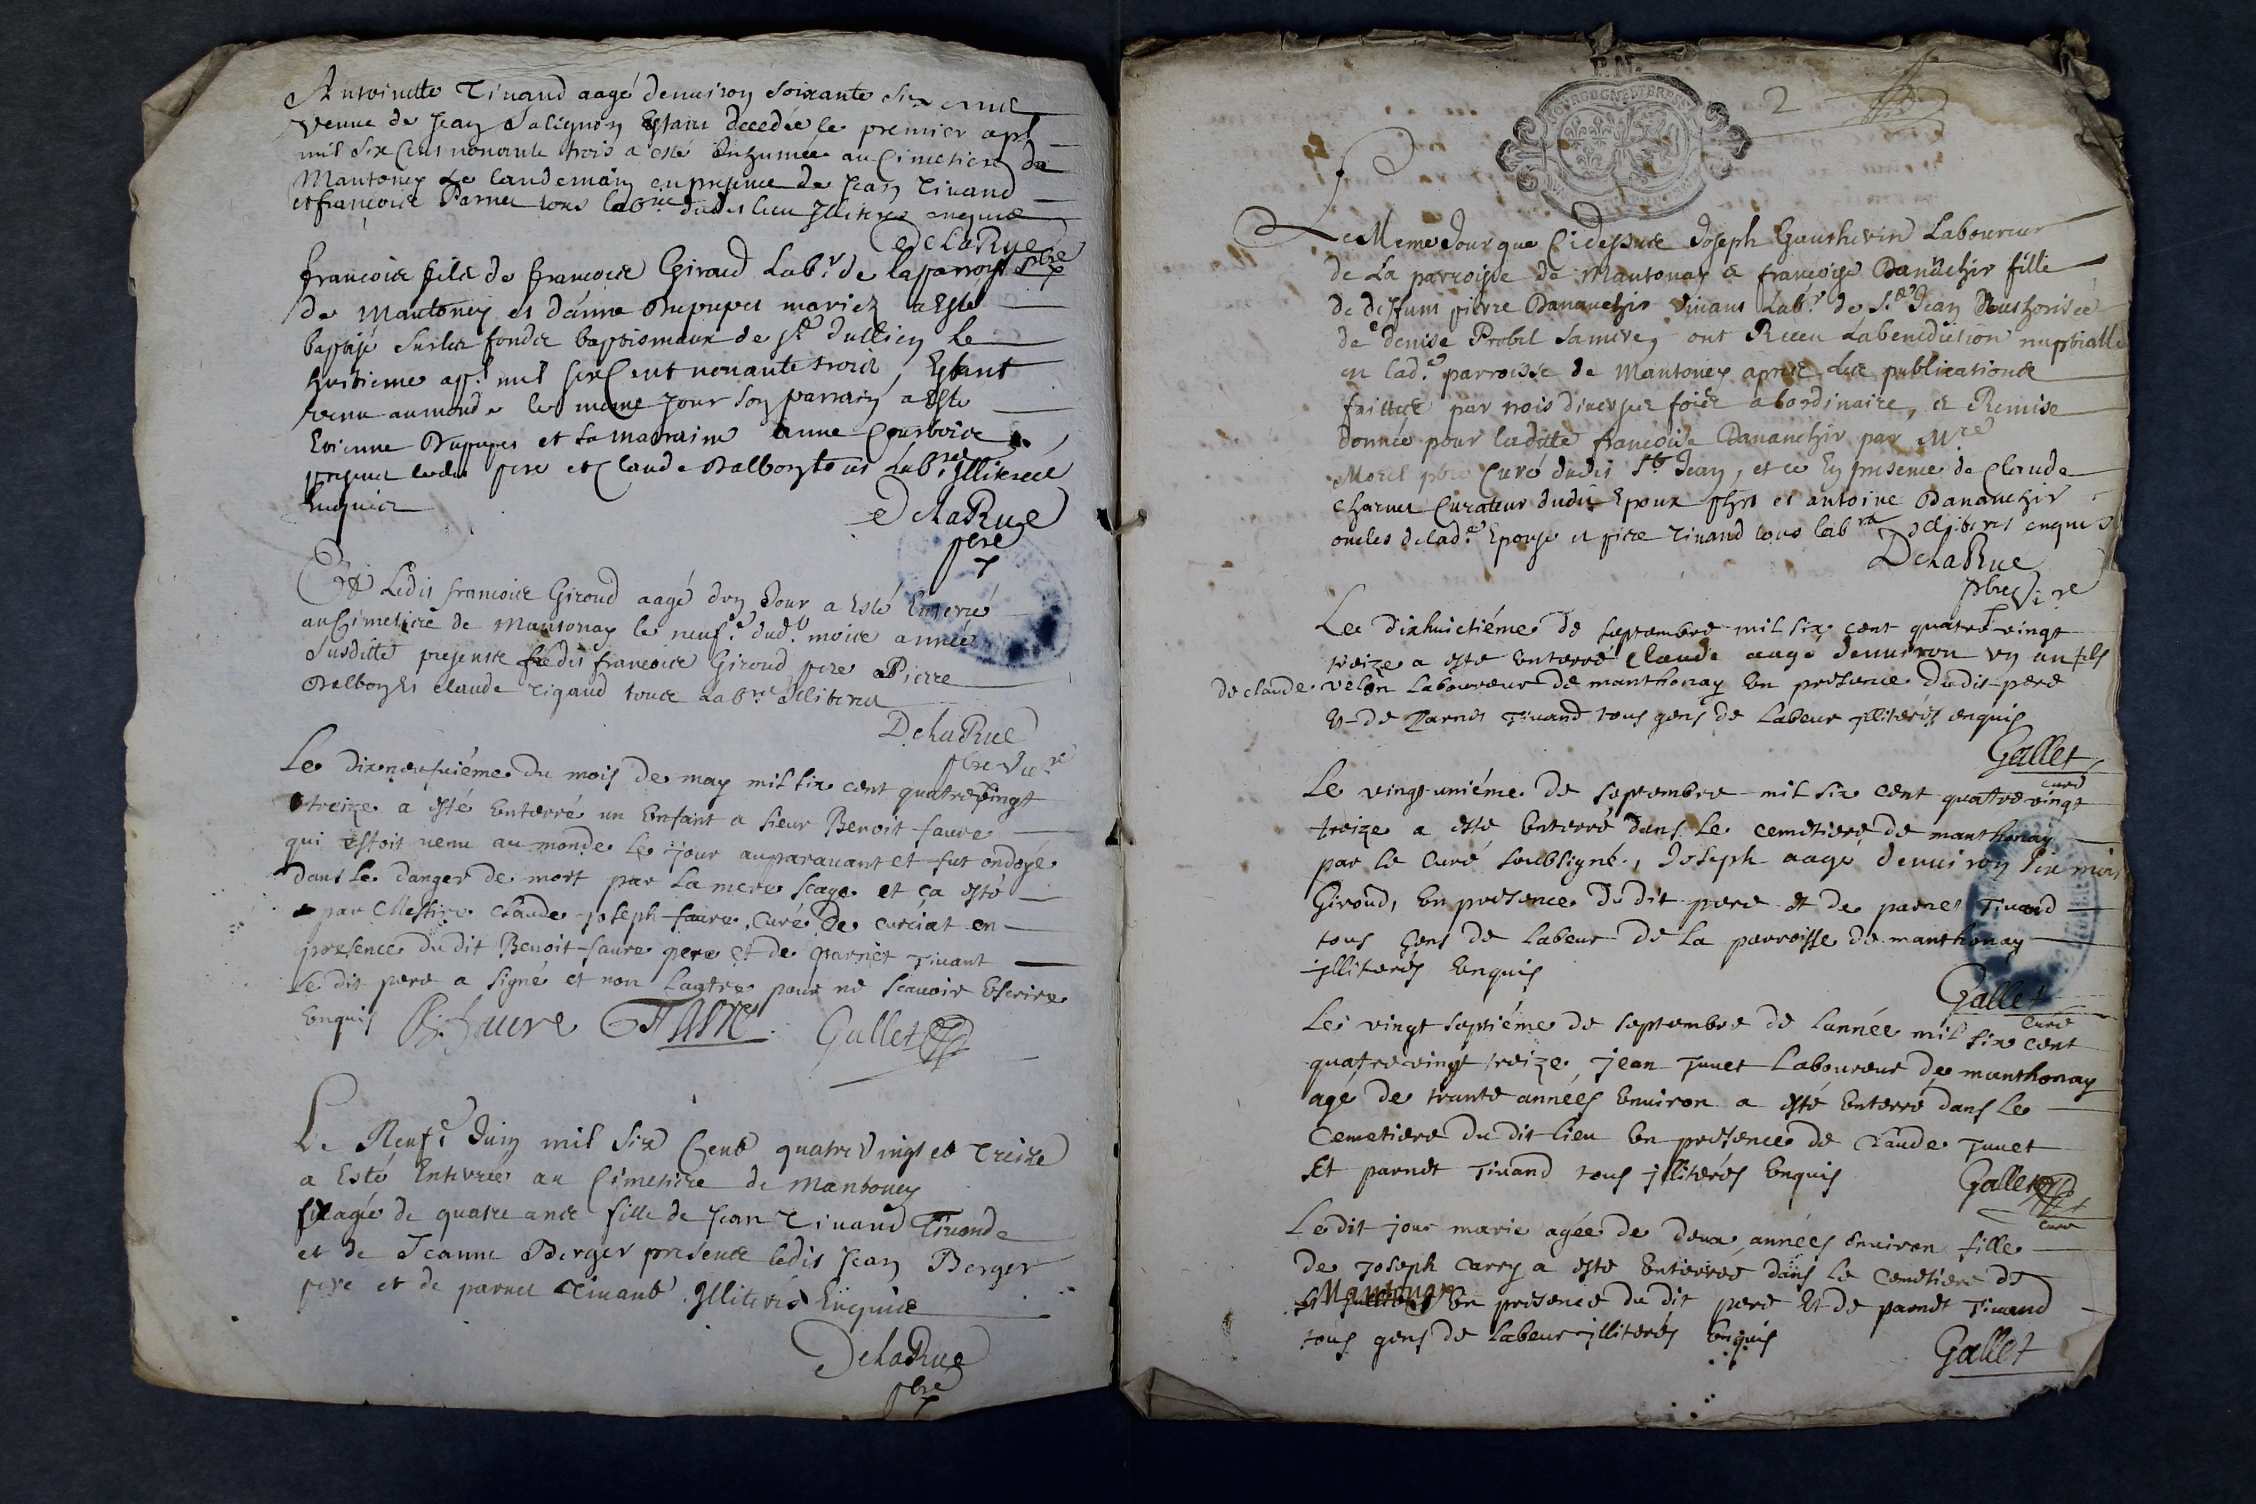 Antoinette Tiuand aagé denuiron soixante six ans
venue de Jean Salignon Estant decedée le premier apl
mil six Cent nonante trois a esté Enhumée au Cimetiere du
Mantoney Le landemain en presence de Jean Tiuand
et françois Parnet tous lab.rs dudit lieu Jlliteres enquis
DelaRue pbre
françois fils de françois Giraud Lab.r de la parroisse
de Mantoney et d'anne Dupupet mariez a Esté
baptisé sur les fonds baptismaux de st Jullien le
huitieme apl mil six Cent nonante trois, Estant
venu au monde le meme Jour son parrain a Esté
Etienne Dupupet et sa marraine anne Courbois
present ledit pere et Claude Dalbon tous lab.rs Jlliterés
Enquis
DelaRue
pbre
Ledit françois Giroud aagé d'un Jour a Esté Enterré
au Cimetiere de Mantonay le neuf.e dud.t mois année
susditte presents ledit françois Giroud pere Pierre
Dalbon et claude Tiuand tous Lab.rs Jlliteres
DelaRue
pbre Vic.re
Le dix neufuiéme du mois de may mil six cent quatre vingt
treize a esté Enterré un Enfant a sieur Benoit faure
qui estoit venu au monde le jour auparauant et fut ondoyé
dans le danger de mort par la mere sage et ça esté
par Messire Claude joseph faure curé de curciat en
presence du dit Benoit faure pere et de parnet Tiuant
Le dit pere a signé et non Lautre pour ne scauoir Escrire
Enquis B. faure Faure Gallet
Le Neuf.e Juin mil six Cent quatre Vingt et Treize
a Esté Enterrée au Cimetiere de Mantoney
aagée de quatre ans fille de Jean Tiuand Tiuande
et de Jeanne Berger presents ledit Jean Berger
pere et de parnet Tiuant Jlliterés Enquis
DelaRue
pbre
2
Le Meme Jour que Cidessus Joseph Gauthevin Laboureur
de La parroisse de Mantonay & françoise Dananchir fille
de deffunt pierre Dananchir viuant Lab.r de St Jean
de denise Probel sa mere, ont Receu La benediction nuptialle
en lad.e parroisse de Mantoney apres les publications
faittes par trois diuerses fois a lordinaire, & Remise
donnée pour laditte françoise Dananchir par Mre
Morel pbre Curé dudit St Jean, et ce En presence de Claude
Charnet Curateur dudit Epoux et antoine Dananchir
oncles de lad.e Epouse et pierre Tiuand tous lab.rs Jlliteres enquis
DelaRue
pbre Vi.re
Le dixhuictiéme de septembre mil six cent quatre vingt
treize a esté Enterré claude aagé denuiron un an fils
de claude velon Laboureur de manthonay En presence dudit pere
Et de Parnet Tiuand tous gens de Labeur jlliterés enquis
Gallet
curé
Le vingt-uniéme de septembre mil six cent quatre vingt
treize a esté Enterré dans le cemetiere de manthonay
par le Curé soubsigné, Joseph aagé denuiron six mois
Giroud, En presence du dit pere et de parnet Tiuand
tous gens de Labeur de La parroisse de manthonay
jlliterés Enquis
Gallet
Curé
Le vingt septiéme de septembre de Lannée mil six cent
quatre vingt treize, jean Juuet Laboureur de manthonay
agé de trante années Enuiron a esté Enterré dans le
Cemetiere du dit lieu En presence de Claude Juuet
Et parnet Tiuand tous jlliterés Enquis
Gallet
curé
Le dit jour marie agée de deux années Enuiron fille
De joseph Carry a esté Enterrée dans le Cemetiere de
Mantonay En presence du dit pere Et de parnet Tiuand
tous gens de Labeur jlliterés Enquis
Gallet